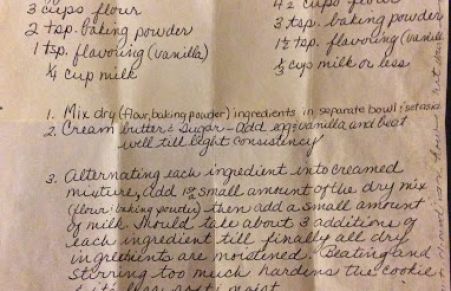 3 cups flour
2 tsp. baking powder
1 tsp. flavouring (vanilla)
1/4 cup milk
4 1/2 cups flour
3 tsp. baking powder
1 1/2 tsp. flavouring (vanilla
cup milk or less
1. Mix dry (flour, baking powder) ingredients in separate bowl; set aside
2. Cream butter & sugar - add egg & vanilla and beat
well till light consistency
3. Alternating each ingredient into creamed
mixture, add 1st small amount of the dry mix
(flour & baking powder) then add a small amount
of milk. Should take about 3 additions of
each ingredient till finally all dry
ingredients are moistened. Beating and
stirring too much hardens the cookie